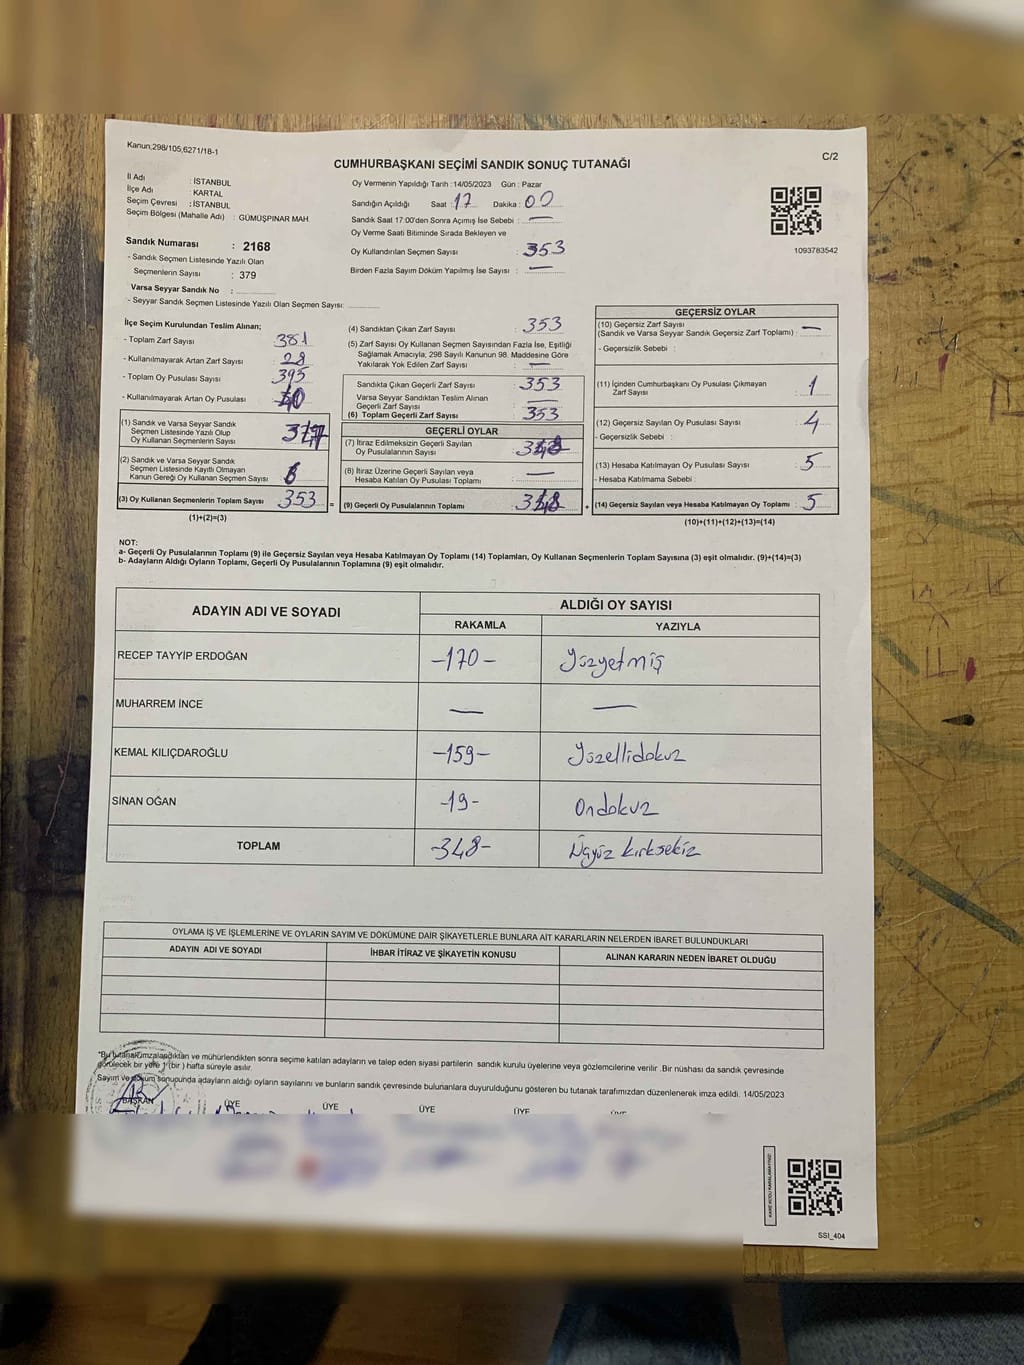 Kanun;298/105,6271/18-1
C/2
CUMHURBAŞKANI SEÇİMİ SANDIK SONUÇ TUTANAĞI
İl Adı : İSTANBUL
İlçe Adı : KARTAL
Seçim Çevresi : İSTANBUL
Seçim Bölgesi (Mahalle Adı) : GÜMÜŞPINAR MAH
Sandık Numarası : 2168
- Sandık Seçmen Listesinde Yazılı Olan
Seçmenlerin Sayısı : 379
Varsa Seyyar Sandık No :
- Seyyar Sandık Seçmen Listesinde Yazılı Olan Seçmen Sayısı:
Oy Vermenin Yapıldığı Tarih :14/05/2023 Gün : Pazar
Sandığın Açıldığı Saat : 17 Dakika : 00
Sandık Saat 17:00'den Sonra Açımış İse Sebebi : —
Oy Verme Saati Bitiminde Sırada Bekleyen ve
Oy Kullandırılan Seçmen Sayısı : 353
Birden Fazla Sayım Döküm Yapılmış İse Sayısı : —
1093783542
İlçe Seçim Kurulundan Teslim Alınan;
- Toplam Zarf Sayısı : 381
- Kullanılmayarak Artan Zarf Sayısı : 28
- Toplam Oy Pusulası Sayısı : 395
- Kullanılmayarak Artan Oy Pusulası :
(1) Sandık ve Varsa Seyyar Sandık
Seçmen Listesinde Yazılı Olup
Oy Kullanan Seçmenlerin Sayısı :
(2) Sandık ve Varsa Seyyar Sandık
Seçmen Listesinde Kayıtlı Olmayan
Kanun Gereği Oy Kullanan Seçmen Sayısı :
(3) Oy Kullanan Seçmenlerin Toplam Sayısı : 353
(1)+(2)=(3)
(4) Sandıktan Çıkan Zarf Sayısı : 353
(5) Zarf Sayısı Oy Kullanan Seçmen Sayısından Fazla İse, Eşitliği
Sağlamak Amacıyla; 298 Sayılı Kanunun 98. Maddesine Göre
Yakılarak Yok Edilen Zarf Sayısı : —
Sandıkta Çıkan Geçerli Zarf Sayısı : 353
Varsa Seyyar Sandıktan Teslim Alınan
Geçerli Zarf Sayısı : —
(6) Toplam Geçerli Zarf Sayısı : 353
GEÇERLİ OYLAR
(7) İtiraz Edilmeksizin Geçerli Sayılan
Oy Pusulalarının Sayısı : 348
(8) İtiraz Üzerine Geçerli Sayılan veya
Hesaba Katılan Oy Pusulası Toplamı : —
= (9) Geçerli Oy Pusulalarının Toplamı : 348
GEÇERSİZ OYLAR
(10) Geçersiz Zarf Sayısı
(Sandık ve Varsa Seyyar Sandık Geçersiz Zarf Toplamı) : —
- Geçersizlik Sebebi :
(11) İçinden Cumhurbaşkanı Oy Pusulası Çıkmayan
Zarf Sayısı : 1
(12) Geçersiz Sayılan Oy Pusulası Sayısı : 4
- Geçersizlik Sebebi :
(13) Hesaba Katılmayan Oy Pusulası Sayısı : 5
- Hesaba Katılmama Sebebi :
+ (14) Geçersiz Sayılan veya Hesaba Katılmayan Oy Toplamı : 5
(10)+(11)+(12)+(13)=(14)
NOT:
a- Geçerli Oy Pusulalarının Toplamı (9) ile Geçersiz Sayılan veya Hesaba Katılmayan Oy Toplamı (14) Toplamları, Oy Kullanan Seçmenlerin Toplam Sayısına (3) eşit olmalıdır. (9)+(14)=(3)
b- Adayların Aldığı Oyların Toplamı, Geçerli Oy Pusulalarının Toplamına (9) eşit olmalıdır.
ADAYIN ADI VE SOYADI ALDIĞI OY SAYISI
RAKAMLA YAZIYLA
RECEP TAYYİP ERDOĞAN -170- Yüzyetmiş
MUHARREM İNCE — —
KEMAL KILIÇDAROĞLU -159- Yüzellidokuz
SİNAN OĞAN -19- Ondokuz
TOPLAM -348- Üçyüz kırksekiz
OYLAMA İŞ VE İŞLEMLERİNE VE OYLARIN SAYIM VE DÖKÜMÜNE DAİR ŞİKAYETLERLE BUNLARA AİT KARARLARIN NELERDEN İBARET BULUNDUKLARI
ADAYIN ADI VE SOYADI İHBAR İTİRAZ VE ŞİKAYETİN KONUSU ALINAN KARARIN NEDEN İBARET OLDUĞU
"Bu tutanak imzalandıktan ve mühürlendikten sonra seçime katılan adayların ve talep eden siyasi partilerin sandık kurulu üyelerine veya gözlemcilerine verilir .Bir nüshası da sandık çevresinde
görülecek bir yere 1 (bir ) hafta süreyle asılır.
Sayım ve döküm sonucunda adayların aldığı oyların sayılarını ve bunların sandık çevresinde bulunanlara duyurulduğunu gösteren bu tutanak tarafımızdan düzenlenerek imza edildi. 14/05/2023
BAŞKAN ÜYE ÜYE ÜYE ÜYE ÜYE
SSI_404